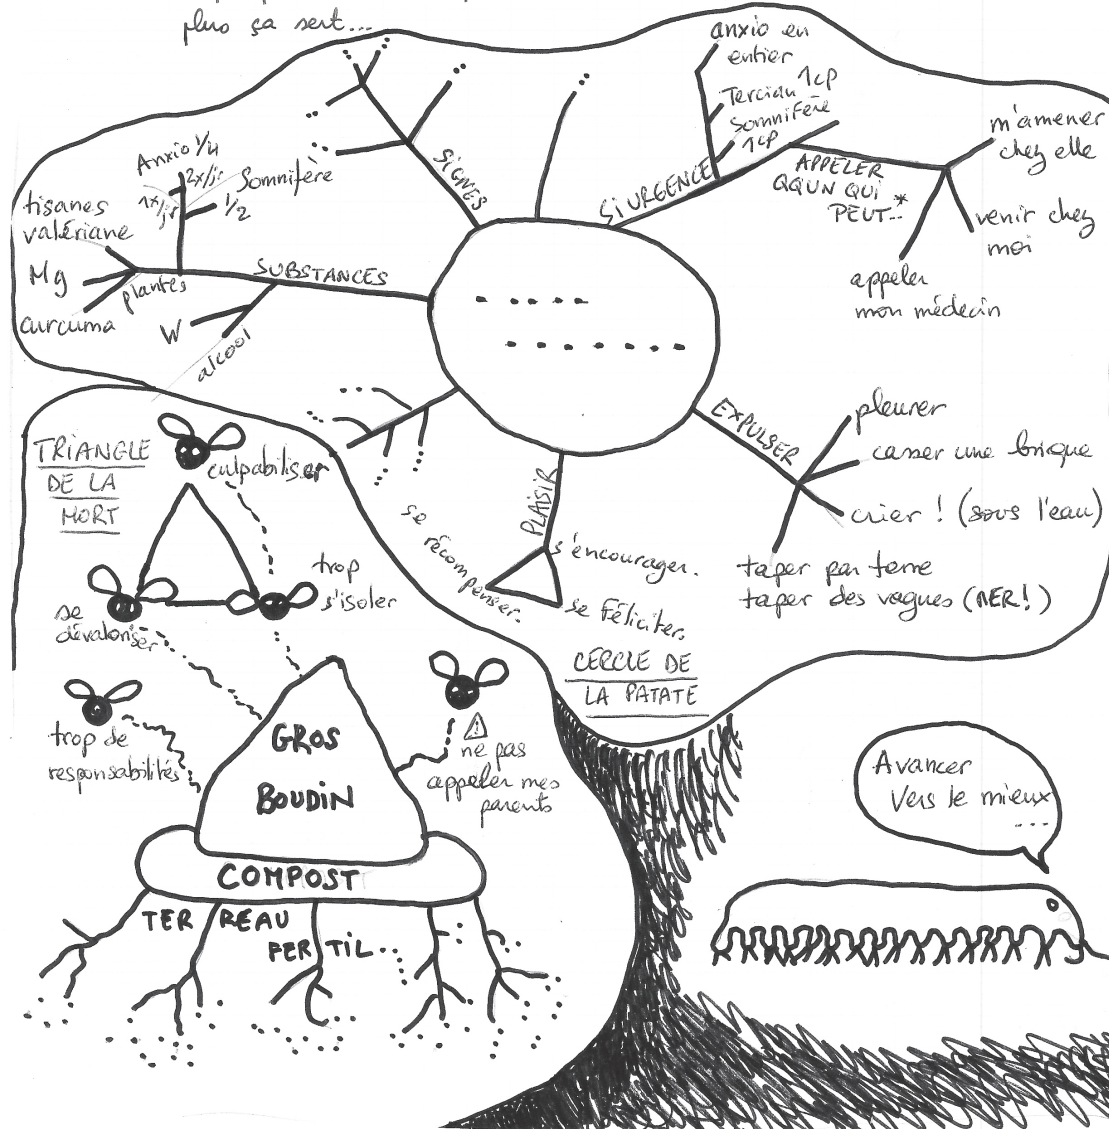 plus ça sert...
anxio en
entier
Tercian 1cp
Somnifère
1cp
SIGNES
SI URGENCE
APPELER
QQUN QUI
PEUT...*
m'amener
chez elle
venir chez
moi
appeler
mon médecin
Anxio 1/4
2x/jr
1x/jr
Somnifère
1/2
tisanes
valériane
Mg
curcuma
plantes
SUBSTANCES
W
alcool
EXPULSER
pleurer
casser une brique
crier ! (sous l'eau)
taper par terre
taper des vagues (MER!)
PLAISIR
s'encourager.
se récompenser.
se féliciter.
CERCLE DE
LA PATATE
TRIANGLE
DE LA
MORT
culpabiliser
trop
s'isoler
se
dévaloriser
trop de
responsabilités
⚠
ne pas
appeler mes
parents
GROS
BOUDIN
COMPOST
TERREAU
FERTIL...
Avancer
Vers le mieux
...